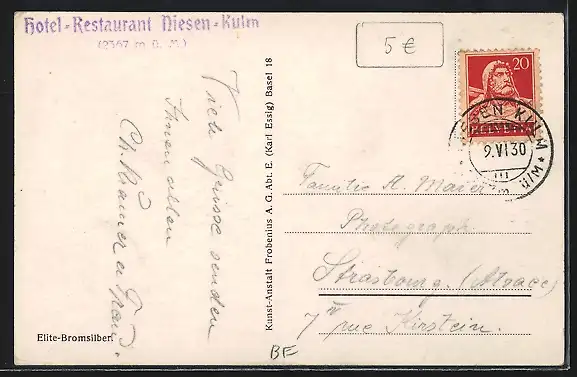 Hotel-Restaurant Niesen-Kulm
(2367 m ü. M.)
5 €
20
HELVETIA
NIESEN KULM
9.VI.30
III
Viele Grüsse senden
Ihnen allen
u Frau.
Elite-Bromsilber.
Kunst-Anstalt Frobenius A. G. Abt. E. (Karl Essig) Basel 18
Familie A. Maier
Photograph
Strasbourg. (Alsace)
7 rue Kirstein.
BE